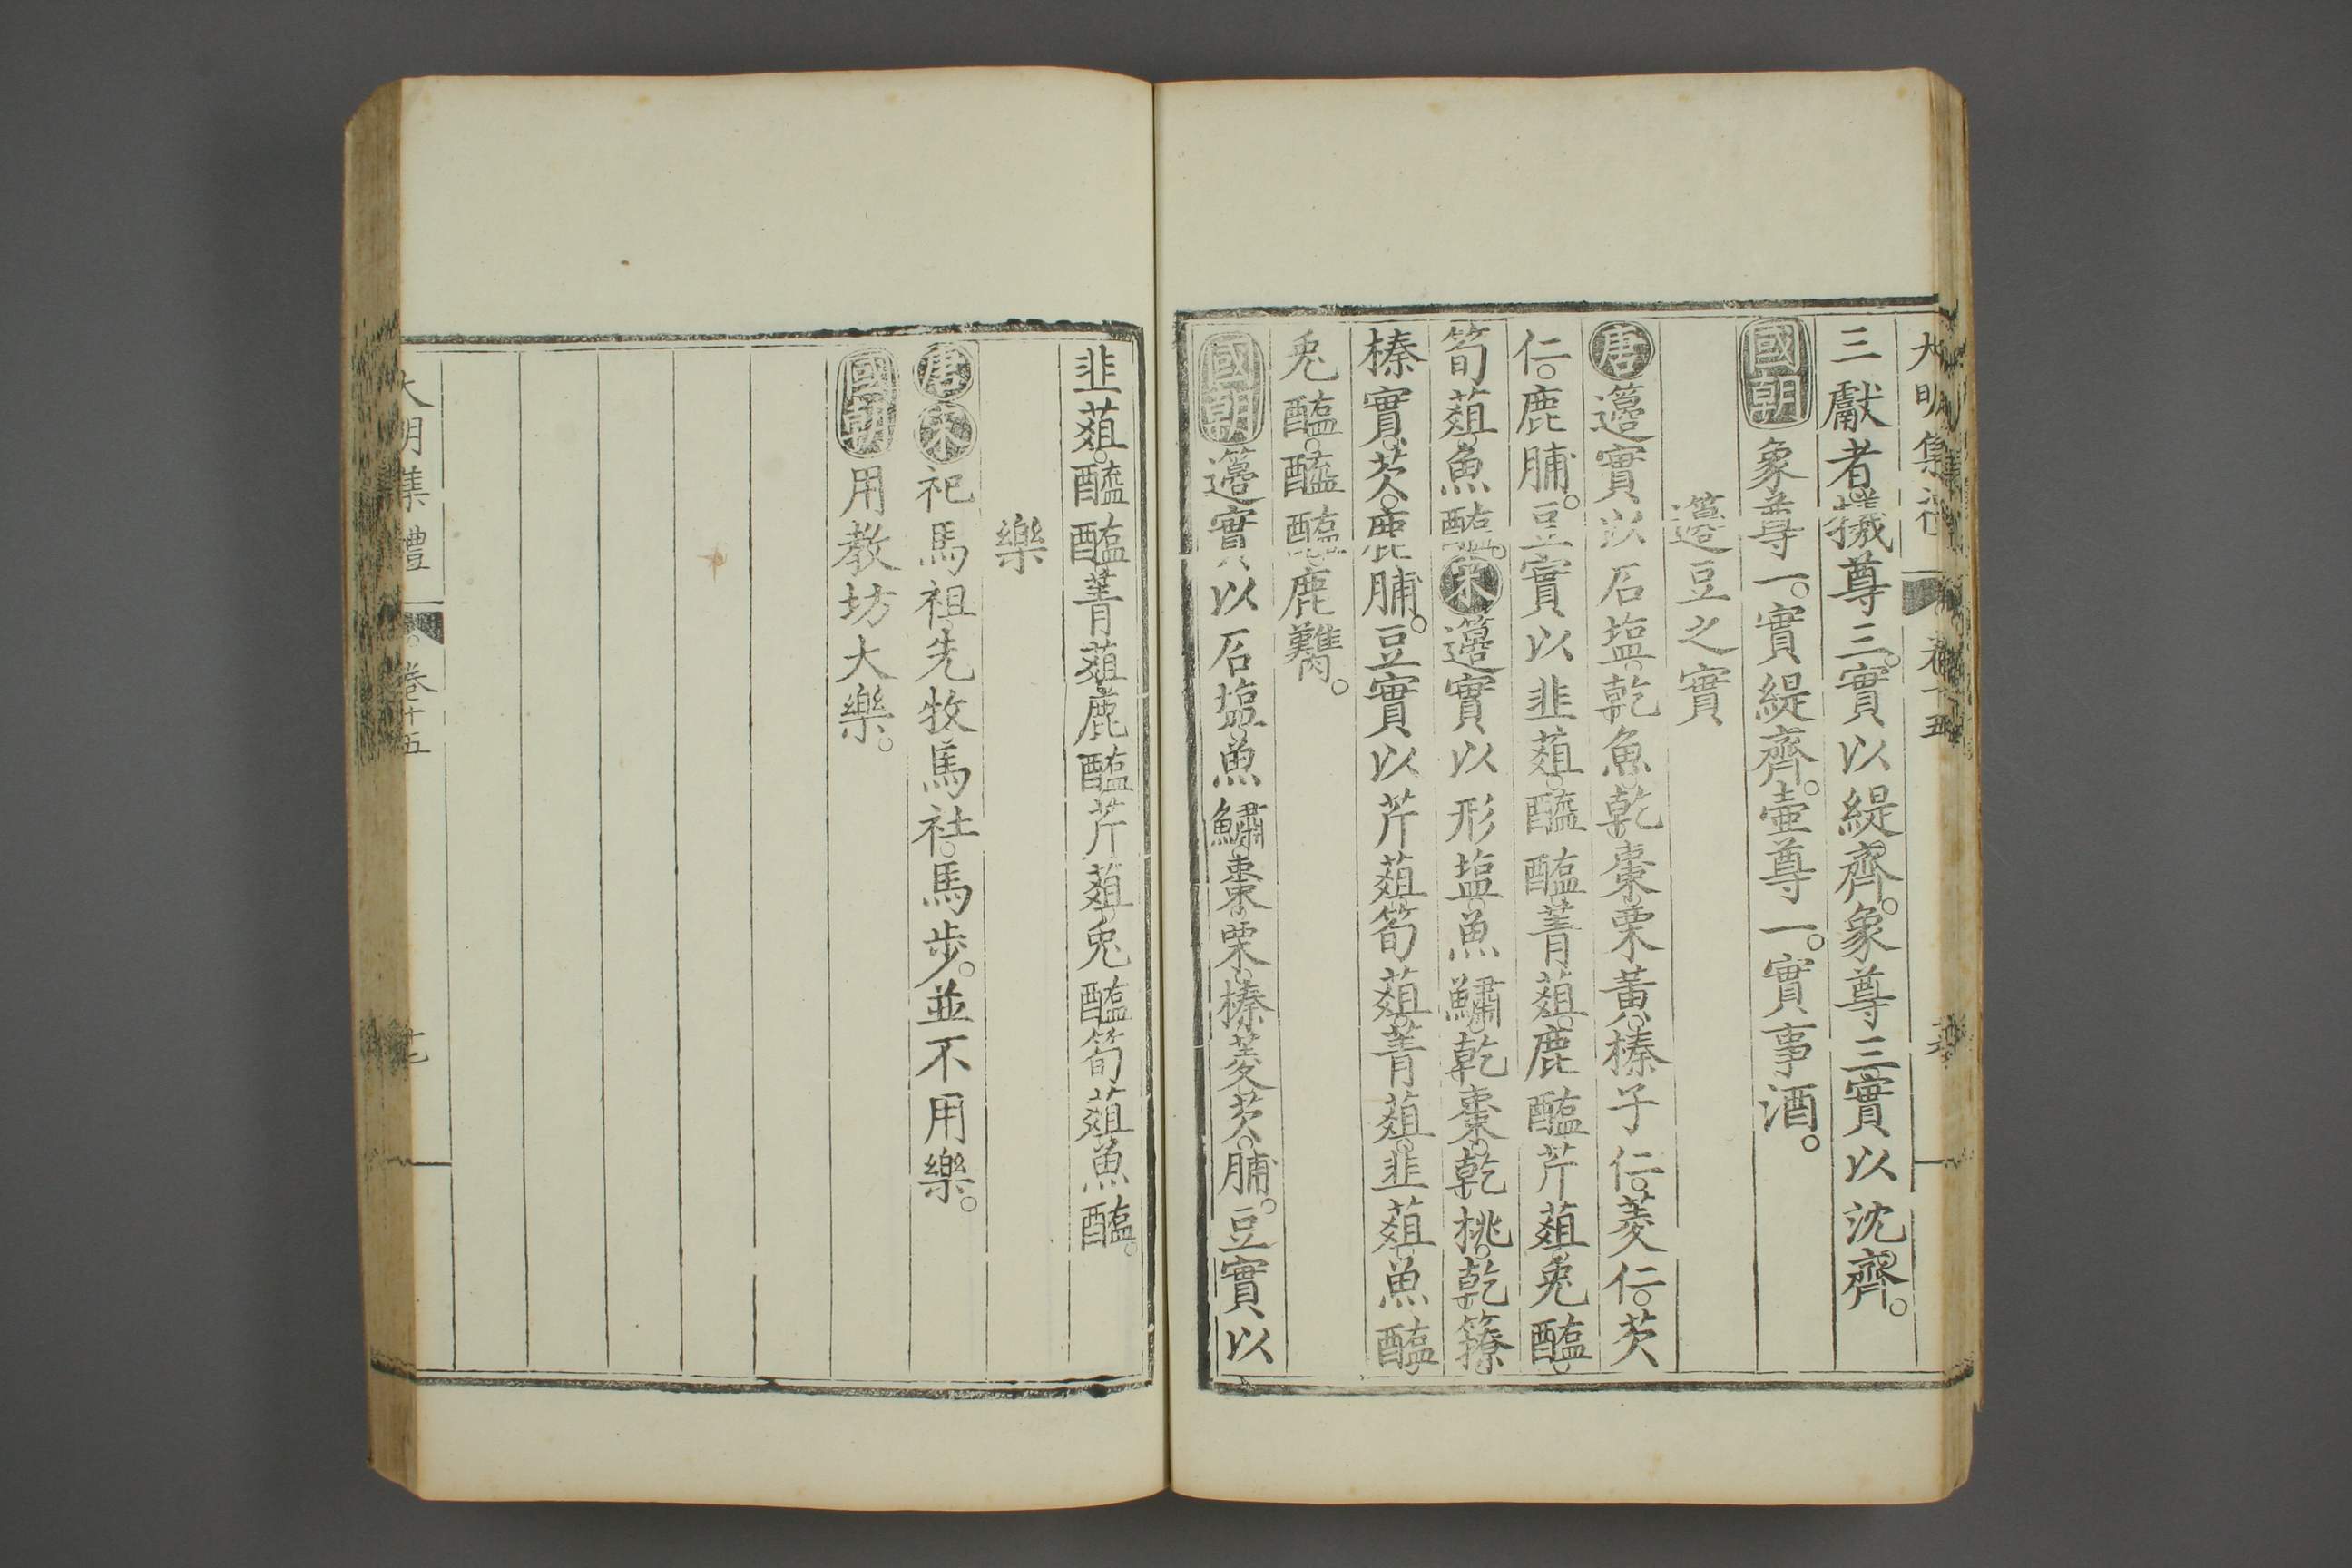 大明集禮 卷十五
三獻者犧尊三。實以緹齊。象尊三。實以沈齊。
國朝象尊一。實緹齊。壷尊一。實事酒。
籩豆之實
唐籩實以石塩。乾魚。乾棗。栗黃。榛子仁。菱仁。芡
仁。鹿脯。豆實以韭葅。醓醢。菁葅。鹿醢。芹葅。兎醢。
筍葅。魚醢。宋籩實以形塩。魚鱐。乾棗。乾桃。乾䕩。
榛實。芡。鹿脯。豆實以芹葅。筍葅。菁葅。韭葅。魚醢。
兎醢。醓醢。鹿臡。
國朝籩實以石塩。魚鱐。棗。栗。榛。菱。芡。脯。豆實以
韭葅。醓醢。菁葅。鹿醢。芹葅。兎醢。筍葅。魚醢。
樂
唐宋祀馬祖。先牧。馬社。馬步。並不用樂。
國朝用教坊大樂。
大明集禮 卷十五 十七